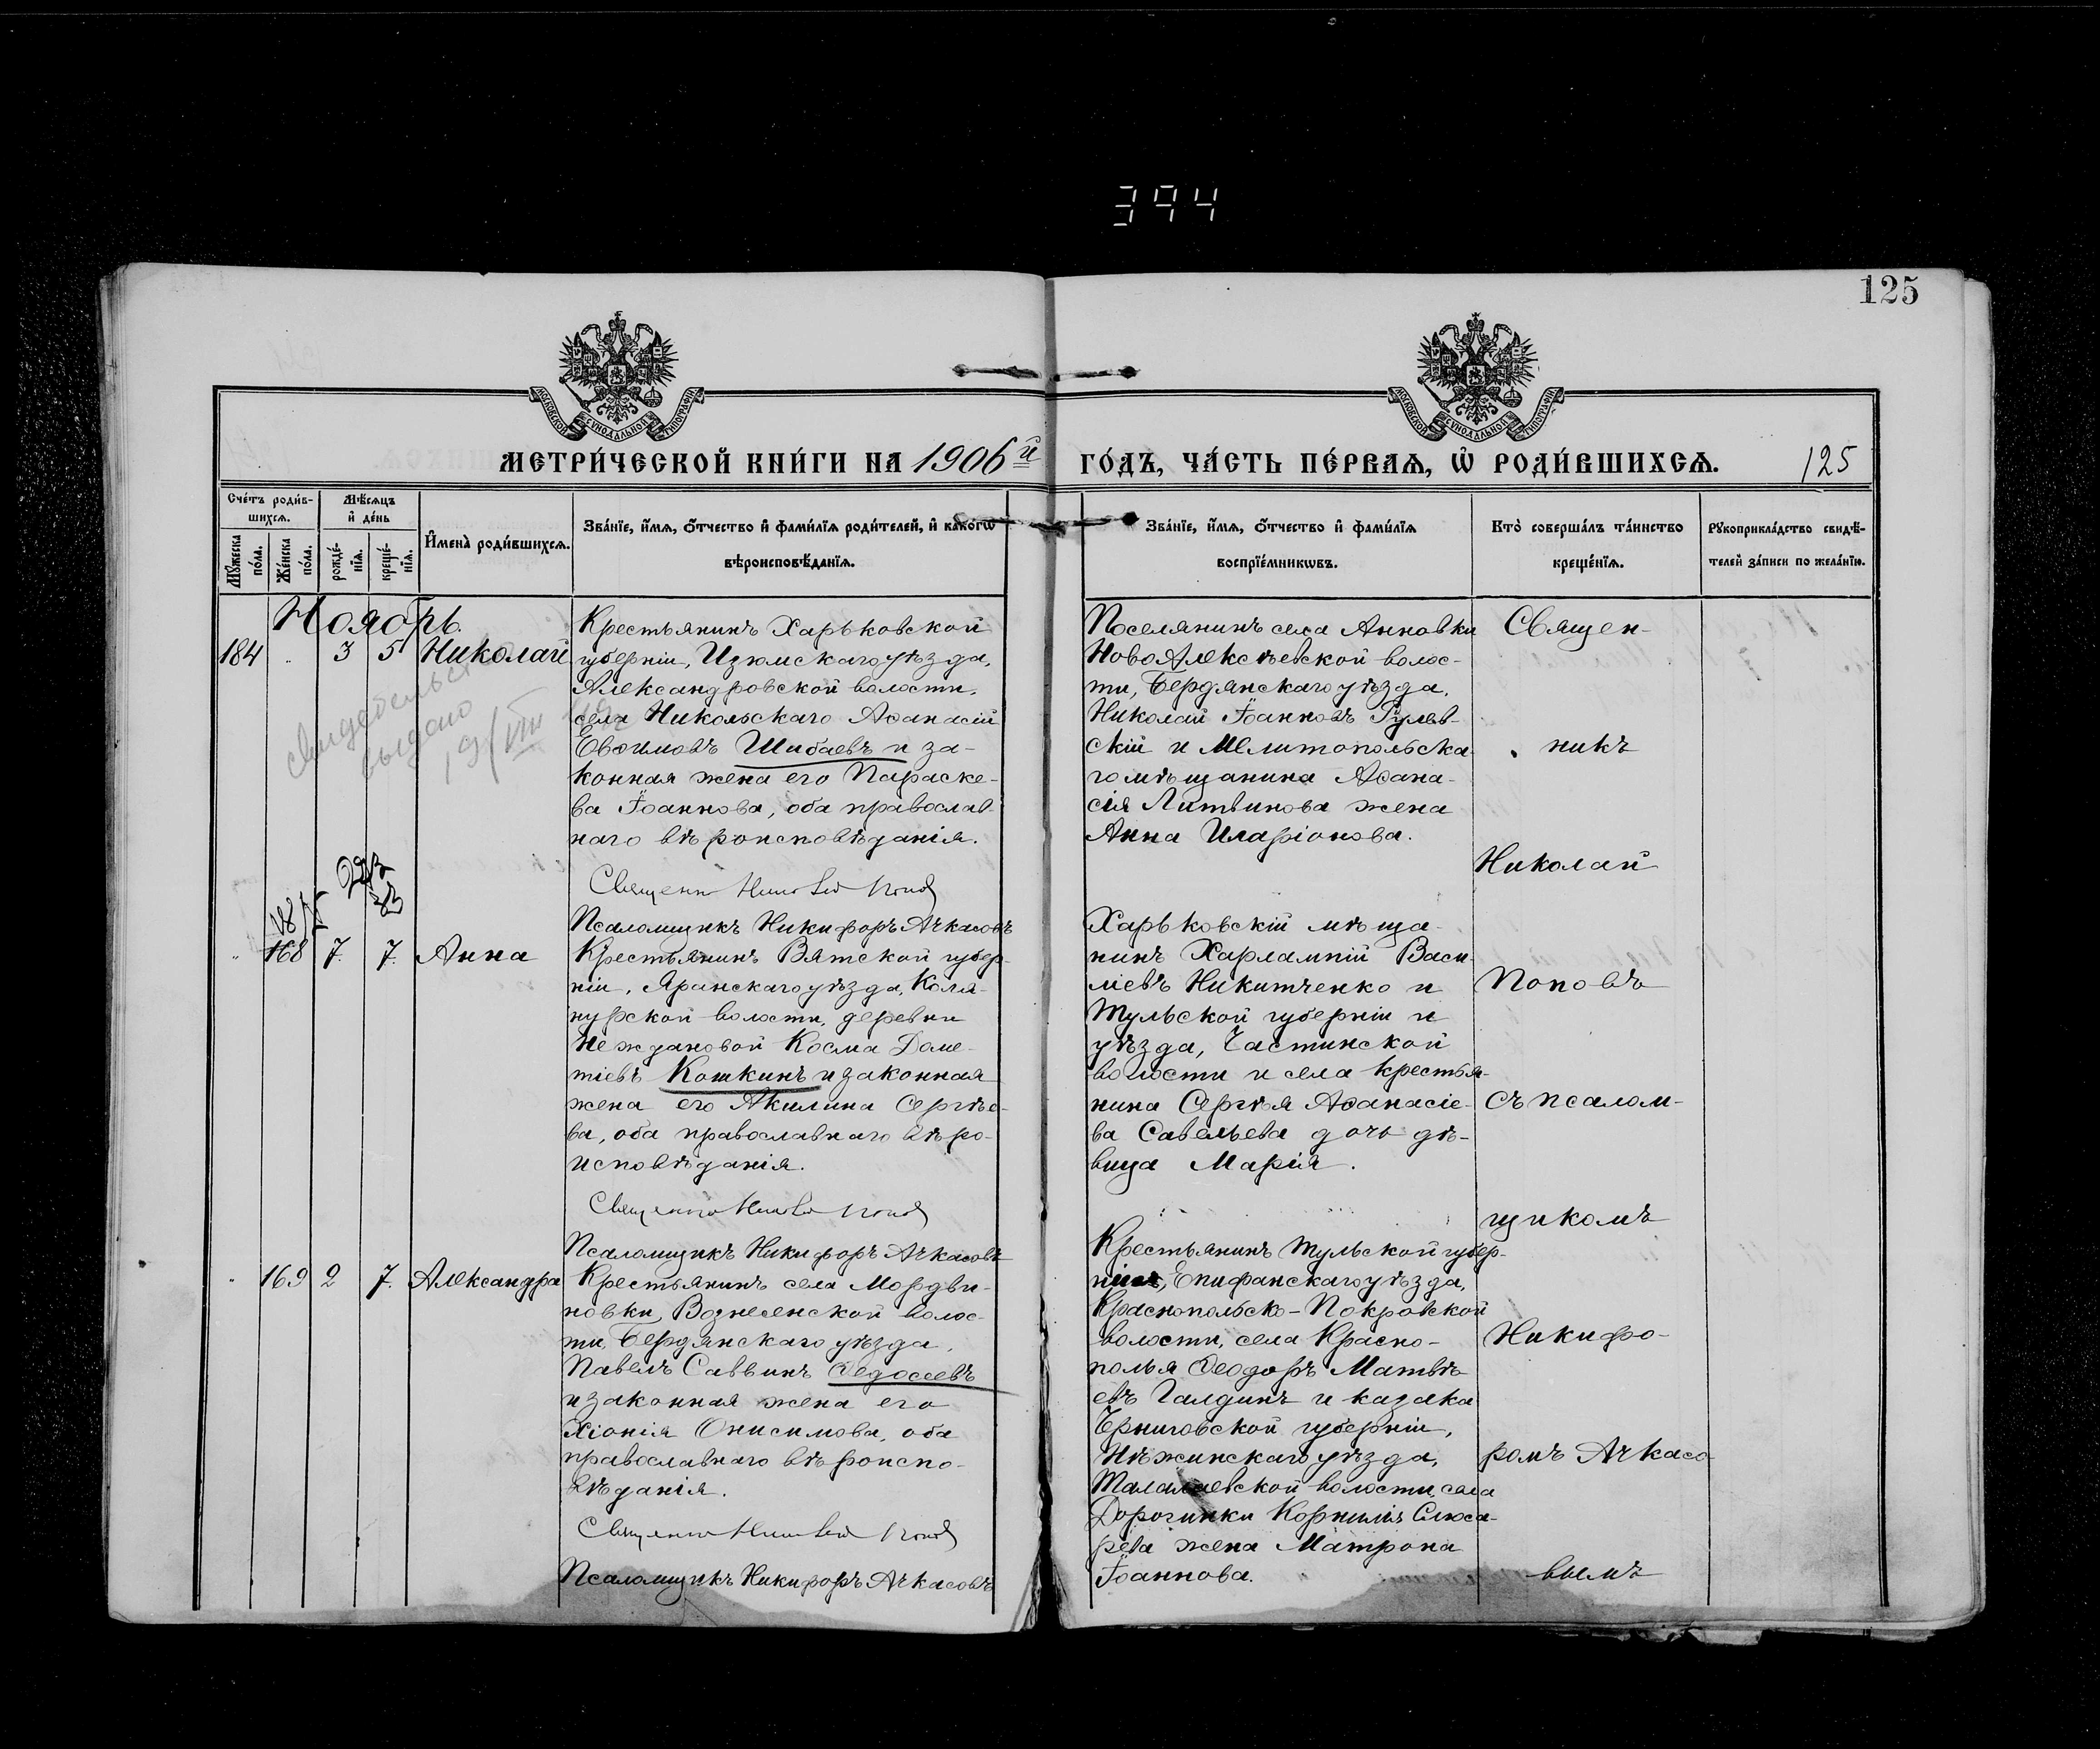 394
125
МОСКОВСКОЙ СѴНОДАЛЬНОЙ ТИПОГРАФІИ
МОСКОВСКОЙ СѴНОДАЛЬНОЙ ТИПОГРАФІИ
МЕТРИ́ЧЕСКОЙ КНИ́ГИ НА 1906й
ГО́ДЪ, ЧА́СТЬ ПЕ́РВАѦ, Ѽ РОДИ́ВШИХСѦ. 125
Сче́тъ роди́в-
шихсѧ.
Мꙋ́жеска по́ла.
Же́нска по́ла.
Мѣ́сѧцъ
и҆ де́нь
рожде́-
нїѧ.
креще́-
нїѧ.
И҆мена̀ роди́вшихсѧ.
Зва́нїе, и҆́мѧ, ѻ҆́тчество и҆ фами́лїѧ роди́телей, и҆ како́гѡ
вѣроисповѣ́данїѧ.
Зва́нїе, и҆́мѧ, ѻ҆́тчество и҆ фами́лїѧ
воспрїе́мникѡвъ.
Кто̀ соверша́лъ та́инство
креще́нїѧ.
Рꙋкоприкла́дство свидѣ́-
телей за́писи по жела́нїю.
Ноябрь.
184 " 3 5 Николай
свидетельст
выдано
19/VIII
Крестьянинъ Харьковской
губерніи, Изюмскаго уѣзда,
Александровской волости,
села Никольскаго Аѳанасій
Евѳимовъ Шибаевъ и за-
конная жена его Параске-
ва Іоаннова, оба православ-
наго вѣроисповѣданія.
Псаломщикъ Никифоръ Ачкасовъ
Поселянинъ села Анновки
НовоАлексѣевской волос-
ти, Бердянскаго уѣзда,
Николай Іоанновъ Гулев-
скій и Мелитопольска-
го мѣщанина Аѳана-
сія Литвинова жена
Анна Иларіонова.
168 7. 7. Анна
Крестьянинъ Вятской губер-
ніи, Яранскаго уѣзда, Коля-
нурской волости, деревни
Неждановой Косма Доме-
тіевъ Кошкинъ и законная
жена его Акилина Сергѣе-
ва, оба православнаго вѣро-
исповѣданія.
Псаломщикъ Никифоръ Ачкасовъ
Харьковскій мѣща-
нинъ Харлампій Васи-
ліевъ Никитченко и
Тульской губерніи и
уѣзда, Частинской
волости и села крестья-
нина Сергѣя Аѳанасіе-
ва Савельева дочь дѣ-
вица Марія.
" 169 2 7. Александра
Крестьянинъ села Мордви-
новки, Вознесенской волос-
ти, Бердянскаго уѣзда,
Павелъ Саввинъ Ѳедосеевъ
и законная жена его
Хіонія Онисимова, оба
православнаго вѣроиспо-
вѣданія.
Псаломщикъ Никифоръ Ачкасовъ
Крестьянинъ Тульской губер-
ніи, Епифанскаго уѣзда,
Краснопольско-Покровской
волости, села Красно-
полья Ѳеодоръ Матвѣ-
евъ Галдинъ и казака
Черниговской губерніи,
Нѣжинскаго уѣзда,
волости, села
Дорогинки Корнилія Слюса-
рева жена Матрона
Іоаннова.
Священ-
никъ
Николай
Поповъ
съ псалом-
щикомъ
Никифо-
ромъ Ачкасо-
вымъ